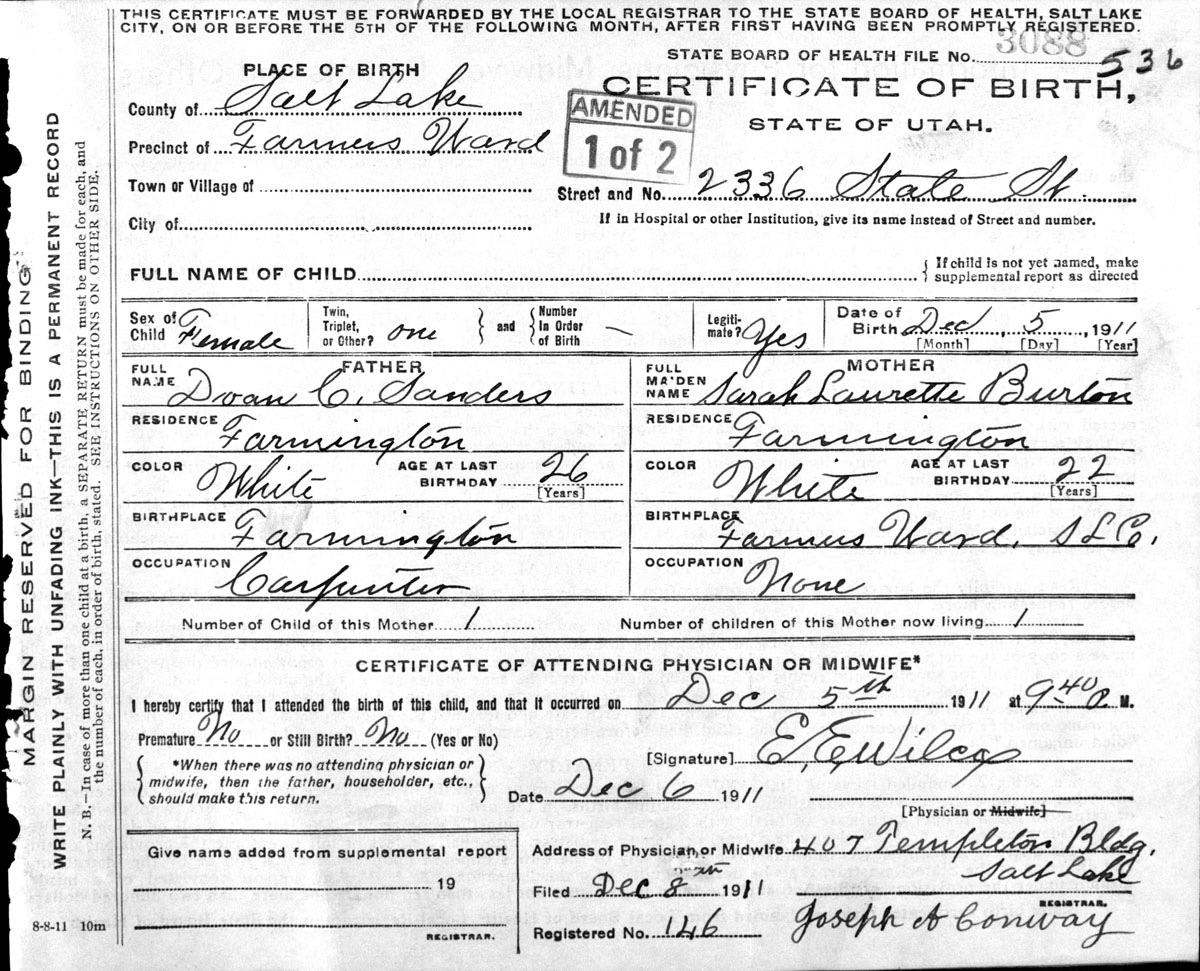 THIS CERTIFICATE MUST BE FORWARDED BY THE LOCAL REGISTRAR TO THE STATE BOARD OF HEALTH, SALT LAKE
CITY, ON OR BEFORE THE 5TH OF THE FOLLOWING MONTH, AFTER FIRST HAVING BEEN PROMPTLY REGISTERED.
STATE BOARD OF HEALTH FILE No. 3088 536
PLACE OF BIRTH
CERTIFICATE OF BIRTH,
STATE OF UTAH.
County of Salt Lake
AMENDED
1 of 2
Precinct of Farmers Ward
Town or Village of
Street and No. 2336 State St.
City of
If in Hospital or other Institution, give its name instead of Street and number.
FULL NAME OF CHILD
{ If child is not yet named, make
supplemental report as directed
Sex of Child Female
Twin, Triplet, or Other? one } and { Number In Order of Birth —
Legiti-mate? Yes
Date of Birth Dec, 5, 1911
[Month] [Day] [Year]
FATHER
FULL NAME Dvan C. Sanders
RESIDENCE Farmington
COLOR White AGE AT LAST BIRTHDAY 26
[Years]
BIRTHPLACE Farmington
OCCUPATION Carpenter
MOTHER
FULL MAIDEN NAME Sarah Laurette Burton
RESIDENCE Farmington
COLOR White AGE AT LAST BIRTHDAY 22
[Years]
BIRTHPLACE Farmers Ward, S L Co.
OCCUPATION None
Number of Child of this Mother 1 Number of children of this Mother now living 1
CERTIFICATE OF ATTENDING PHYSICIAN OR MIDWIFE*
I hereby certify that I attended the birth of this child, and that it occurred on Dec 5th 1911 at 9 40 a M.
Premature No or Still Birth? No (Yes or No)
[Signature] E. E. Wilcox
{ *When there was no attending physician or
midwife, then the father, householder, etc.,
should make this return. }
Date Dec 6 1911
[Physician or Midwife]
Give name added from supplemental report
19
REGISTRAR.
Address of Physician, or Midwife 407 Templeton Bldg.
Salt Lake
Filed Dec 8 1911
REGISTRAR.
Registered No. 146 Joseph A Conway
8-8-11 10m
MARGIN RESERVED FOR BINDING
WRITE PLAINLY WITH UNFADING INK—THIS IS A PERMANENT RECORD
N. B.—In case of more than one child at a birth, a SEPARATE RETURN must be made for each, and
the number of each, in order of birth, stated. SEE INSTRUCTIONS ON OTHER SIDE.